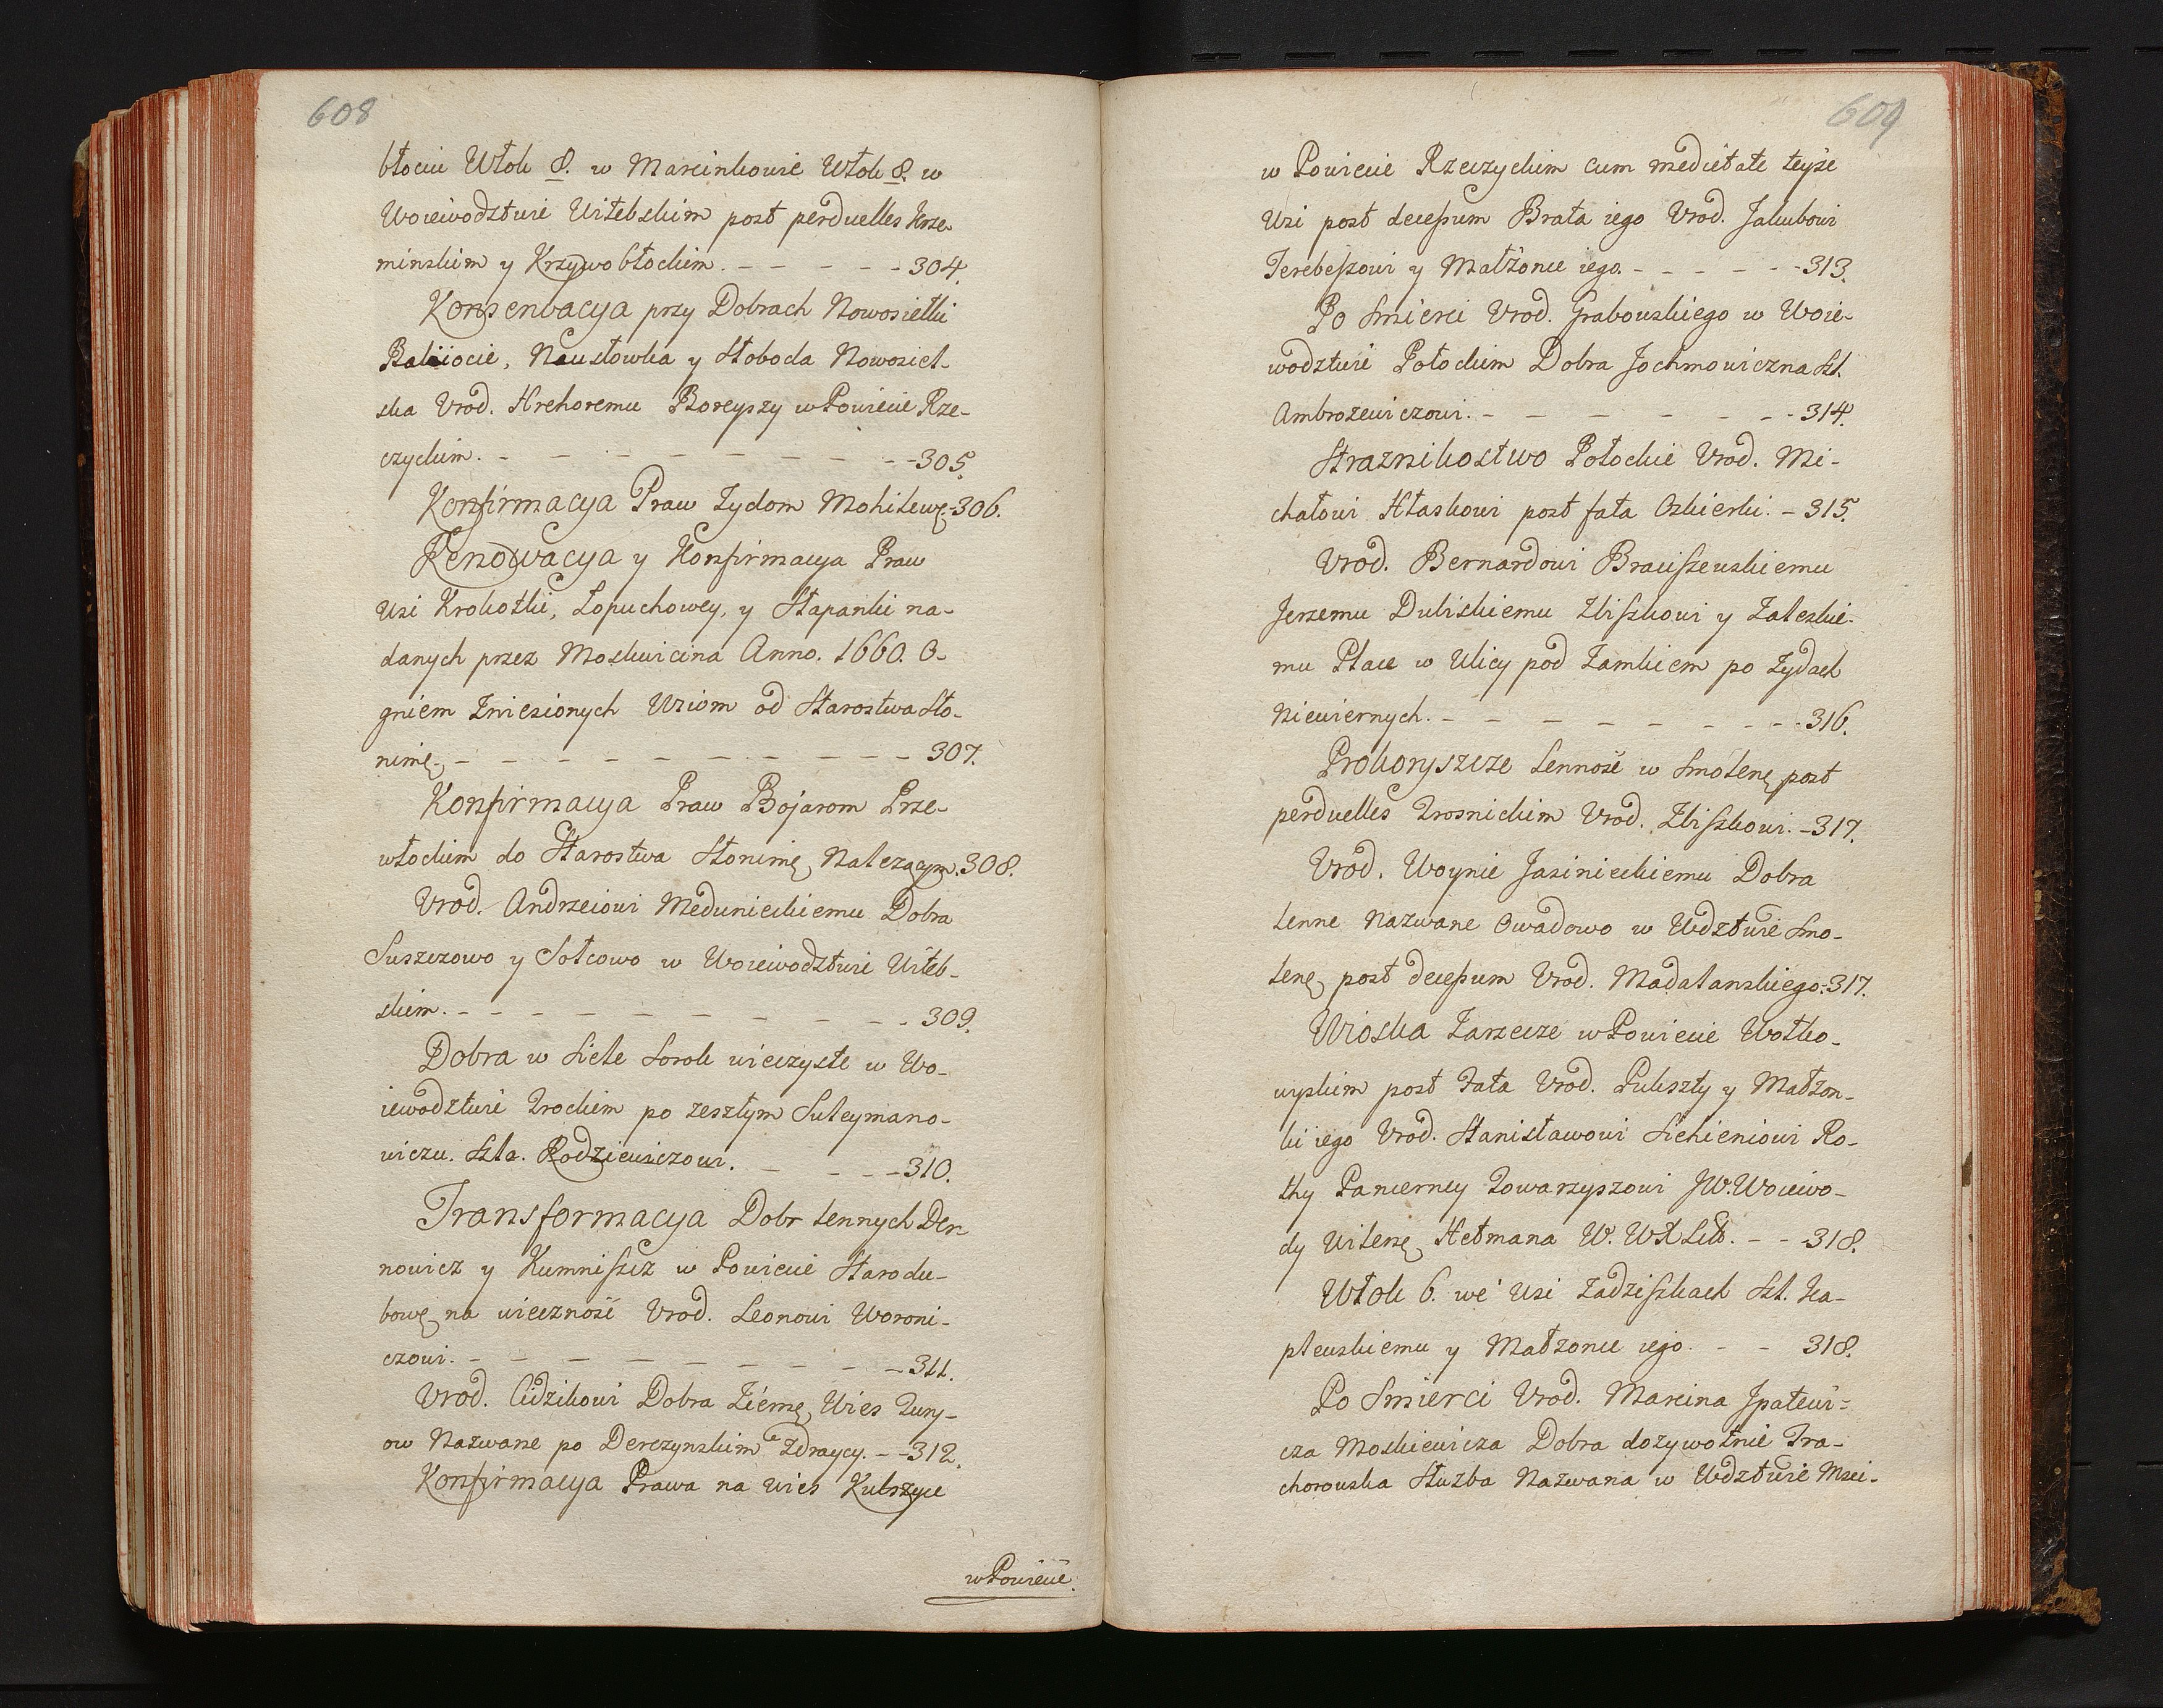 608
błociu Włok 8. w Marcinkowie Włok 8. w
Woiewodztwie Witebskim post perduelles Krze-
minskim y Krzywobłockim. - - - - - 304.
Konserwacya przy Dobrach Nowosiełki
Naustowka y Słoboda Nowosiel-
ska Urod. Hrehoremu Boreyszy w Powiecie Rze-
czyckim. - - - - - - - - - 305.
Konfirmacya Praw Zydom Mohilew. - 306.
Renowacya y Konfirmacya Praw
Wsi Krokotki, Łopuchowey, y Stapanki na-
danych przez Moskwicina Anno. 1660. O-
gniem Zniesionych Wsiom od Starostwa Sło-
nim. - - - - - - - - - - - 307.
Konfirmacya Praw Bojarom Prze-
włockim do Starostwa Słonim. Nalezącym. 308.
Urod. Andrzeiowi Medunieckiemu Dobra
Suszczowo y Sołcowo w Woiewodztwie Witeb-
skim. - - - - - - - - - - - 309.
Dobra w Siele Sorok wieczyste w Wo-
iewodztwie Trockim po zeszłym Suleymano-
wiczu. Szla. Rodziewiczowi. - - - - 310.
Transformacya Dobr lennych Der-
nowicz y Kumniszcz w Powiecie Starodu-
bow. na wieczność Urod. Leonowi Woroni-
czowi. - - - - - - - - - - 311.
Urod. Cidzikowi Dobra Ziem. Wies Tury-
ow Nazwane po Derczynskim Zdraycy. - - 312.
Konfirmacya Prawa na wies Kulszyce
w Powiecie.
609
w Powiecie Rzeczyckim cum medietate teyże
Wsi post decessum Brata iego Urod. Jakubowi
Terebeszowi y Małżonce iego. - - - - - - 313.
Po Smierci Urod. Grabowskiego w Woie-
wodztwie Połockim Dobra Jochmowiczna Szl.
Ambrozewiczowi. - - - - - - - - 314.
Straznikostwo Połockie Urod. Mi-
chałowi Hłaskowi post fata Oskierki. - 315.
Urod. Bernardowi Braciszewskiemu
Jerzemu Dubiskiemu Zbiszkowi y Zaleskie-
mu Place w Ulicy pod Zamkiem po Zydach
Niewiernych. - - - - - - - - - 316.
Prokoryszcze Lennośc w Smolen. post
perduelles Trosnickim Urod. Zbiszkowi. - 317.
Urod. Woynie Jasinieckiemu Dobra
lenne Nazwane Owadowo w Wdztwie Smo-
len. post decessum Urod. Madalanskiego. - 317.
Wioska Zarzecze w Powiecie Wołko-
wyskim post Fata Urod. Puksztу y Małżon-
ki iego Urod. Stanisławowi Siehieniowi Ro-
thy Pancerney Towarzyszowi JW. Woiewo-
dy Wilens. Hetmana W. WXLitt. - - 318.
Włok 6. we Wsi Zadziszkach Szl. Ka-
plewskiemu y Małzonce iego. - - 318.
Po Smierci Urod. Marcina Jpatewi-
cza Moskiewicza Dobra dozywotnie Tra-
chorowska Słuzba Nazwana w Wdztwie Msci-